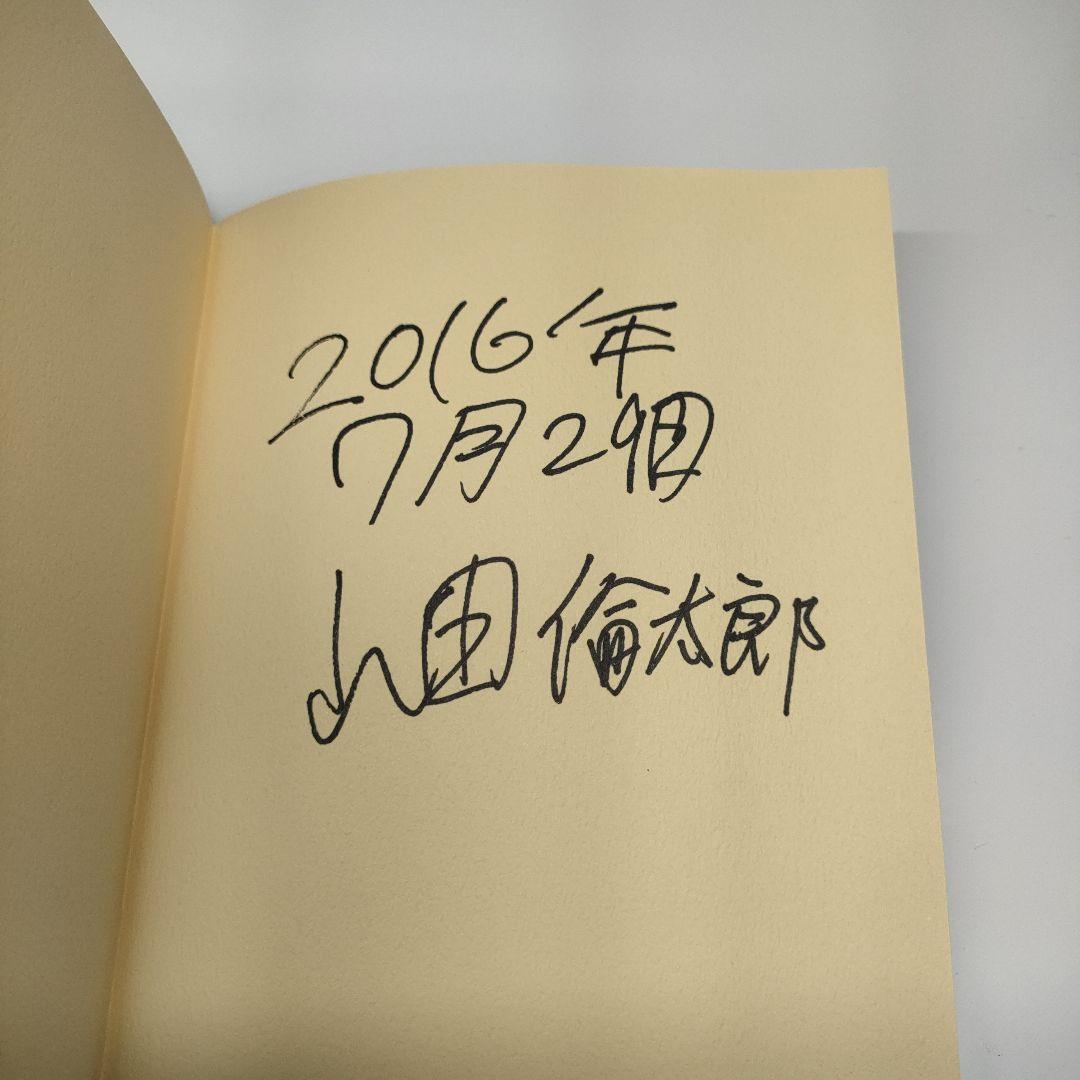 2016年
7月29日
山田倫太郎